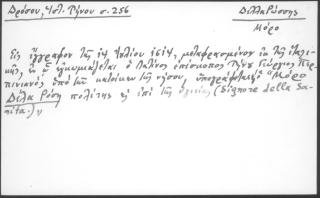 Δρόσου, Ἱστ. Τήνου σ. 256
Δελλαρόσσης
Μόρο
Εἰς ἔγγραφον τῆς 14 Ἰουλίου 1614, μεταφρασμένον ἐκ τῆς ἰταλι-
κῆς, ἐν ᾧ ἐγκωμιάζεται ὁ Λατῖνος ἐπίσκοπος Τήνου Γεώργιος Περ-
πινιανός ὑπό τῶν κατοίκων τῆς νήσου, ὑπογράφεται "Μόρο
Δέλα Ρόση πολίτης κ ἐπί τῆς ὑγείας (Signore della Sa-
nita.)"